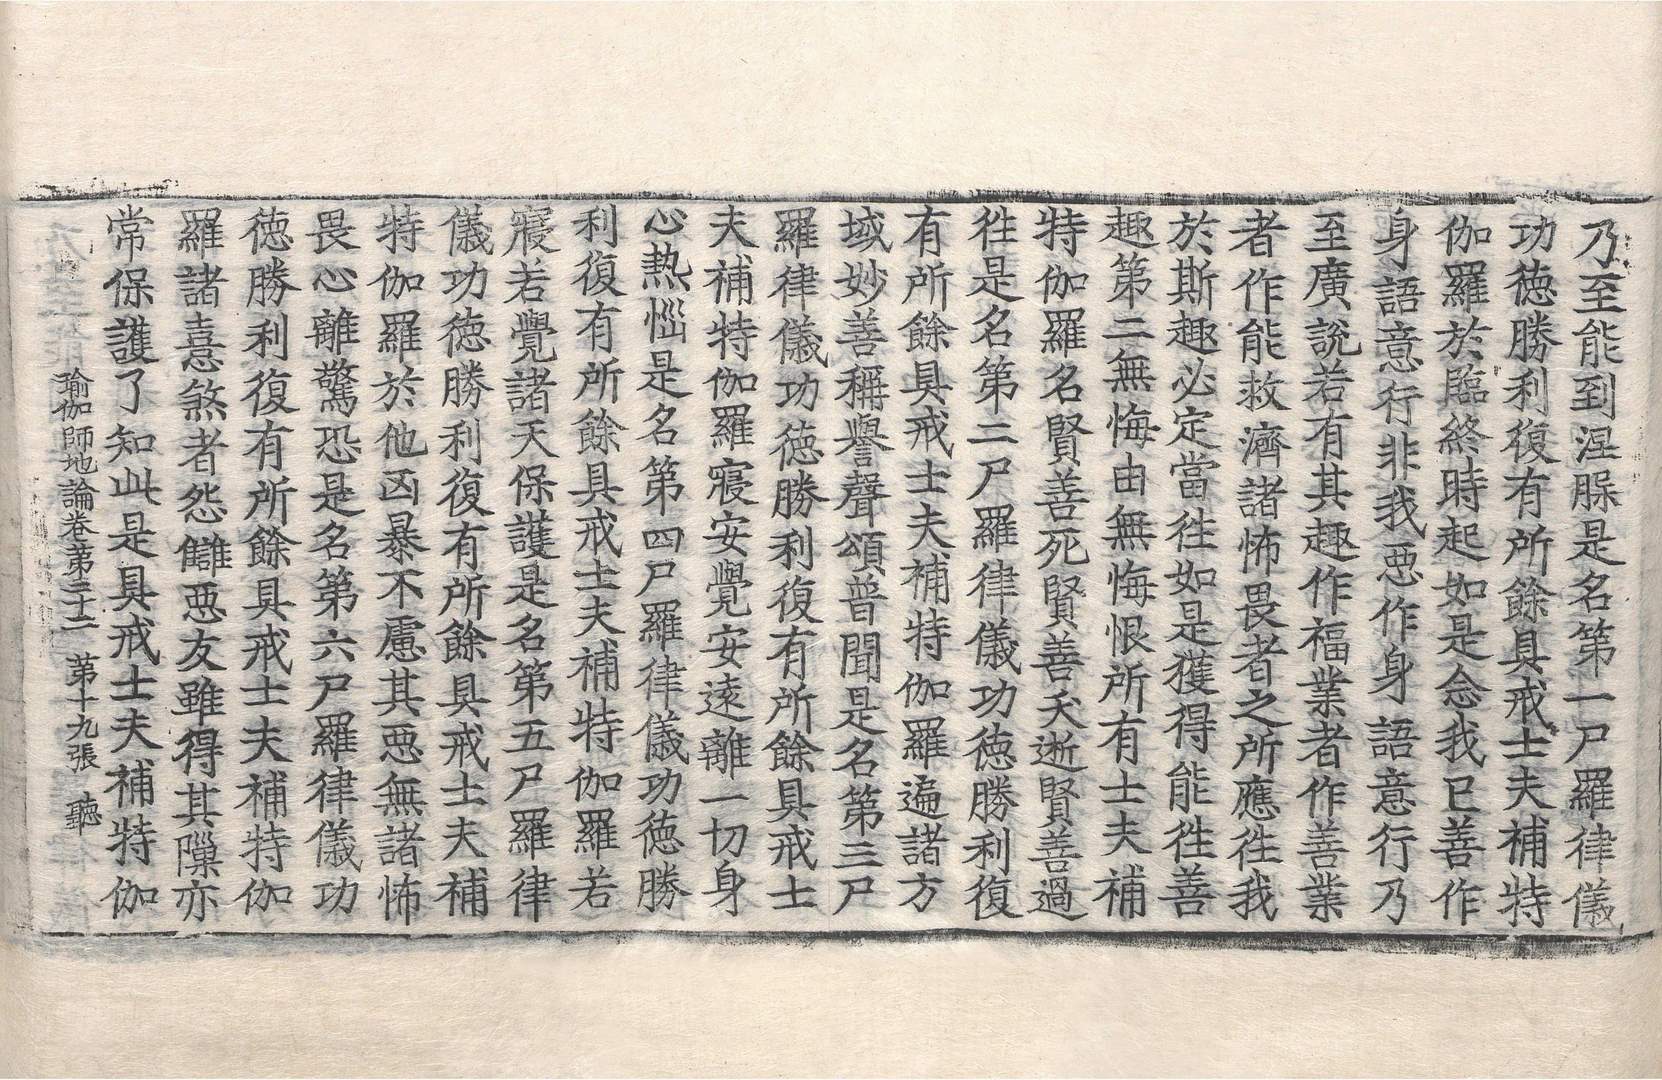 乃至能到涅槃是名第一尸羅律儀
功徳勝利復有所餘具戒士夫補特
伽羅於臨終時起如是念我已善作
身語意行非我惡作身語意行乃
至廣說若有其趣作福業者作善業
者作能救濟諸怖畏者之所應往我
於斯趣必定當往如是獲得能往善
趣第二無悔由無悔恨所有士夫補
特伽羅名賢善死賢善夭逝賢善過
往是名第二尸羅律儀功徳勝利復
有所餘具戒士夫補特伽羅遍諸方
域妙善稱譽聲頌普聞是名第三尸
羅律儀功徳勝利復有所餘具戒士
夫補特伽羅寢安覺安遠離一切身
心熱惱是名第四尸羅律儀功徳勝
利復有所餘具戒士夫補特伽羅若
寢若覺諸天保護是名第五尸羅律
儀功徳勝利復有所餘具戒士夫補
特伽羅於他凶暴不慮其惡無諸怖
畏心離驚恐是名第六尸羅律儀功
徳勝利復有所餘具戒士夫補特伽
羅諸憙煞者怨讎惡友雖得其隟亦
常保護了知此是具戒士夫補特伽
瑜伽師地論卷第二十二 第十九張 聽